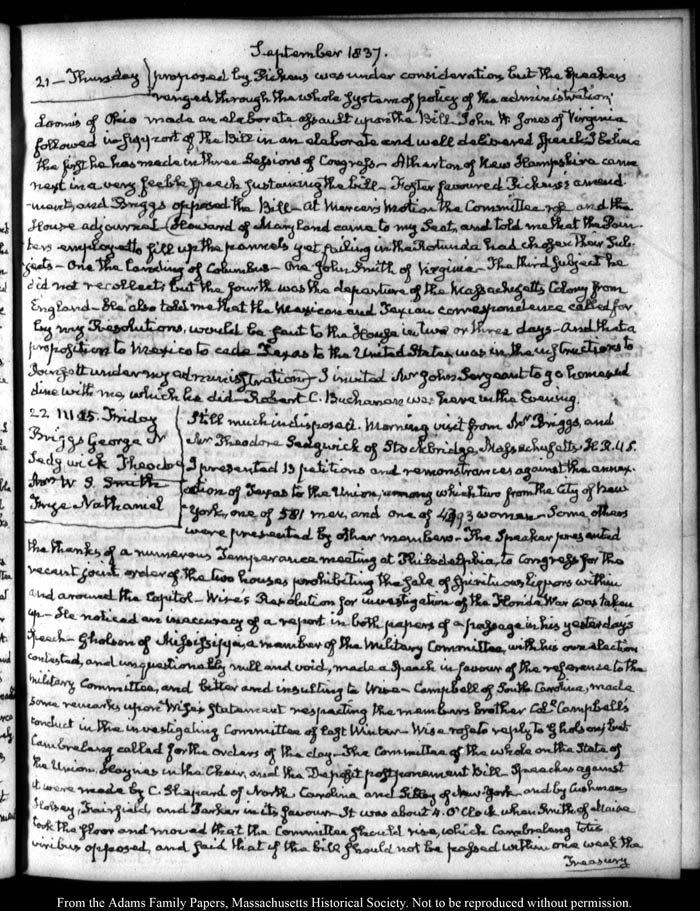 September 1837.
21 — Thursday proposed by Pickens was under consideration but the speakers
ranged through the whole system of policy of the administration
Loomis of Ohio made an elaborate assault upon the Bill. John W Jones of Virginia
followed in support of the Bill in an elaborate and well delivered speech, I believe
the first he has made in three Sessions of Congress — Atherton of New Hampshire came
next in a very feeble speech sustaining the bill — Foster favoured Pickens's amend-
-ment, and Briggs opposed the Bill — At Mercer's Motion the Committee rose and the
House adjourned. Howard of Maryland came to my Seat, and told me that the Pain-
ters employed to fill up the pannels yet failing in the Rotunda had chosen their Sub-
jects — One the Landing of Columbus — One John Smith of Virginia — The third Subject he
did not recollect; but the fourth was the departure of the Massachusetts Colony from
England — He also told me that the Mexican and Texian correspondence called for
by my Resolutions, would be sent to the House in two or three days — And that a
proposition to Mexico to cede Texas to the United States was in the instructions to
Poinsett under my administration — I invited Mr John Sergeant to go home and
dine with me, which he did — Robert C. Buchanan was here in the Evening.
22 III.45. Friday Still much indisposed. Morning visit from Mr Briggs, and
Briggs George N Mr Theodore Sedgwick of Stockbridge, Massachusetts. H.R.U.S.
Sedgwick Theodore I presented 13 petitions and remonstrances against the annex-
W. S. Smith ation of Texas to the Union, among which two from the City of New-
Frye Nathaniel York, one of 581 men, and one of women — Some others
were presented by other members — The Speaker presented
the thanks of a numerous Temperance meeting at Philadelphia, to Congress for the
recent joint order of the two houses prohibiting the sale of Spirituous liquors within
and around the Capitol — Wise's Resolution for investigation of the Florida War was taken
up — He noticed an inaccuracy of a report in both papers of a passage in his yesterdays
Speech — Gholson of Mississippi, a member of the Military Committee, with his own election
contested, and unquestionably null and void, made a Speech in favour of the reference to the
military Committee, and bitter and insulting to Wise — Campbell of South Carolina, made
some remarks upon Wise's statement respecting the members brother Col. Campbell's
conduct in the investigating Committee of last Winter — Wise rose to reply to Gholson, but
Cambreleng called for the orders of the day — The Committee of the whole on the State of
the Union, Haynes in the Chair, and the Deposit postponement Bill. Speeches against
it were made by C. Shepard of North Carolina and Sibley of New York, and by Cushman
Fairfield, and Parker in its favour. It was about 4. O'Clock when Smith of Maine
took the floor and moved that the Committee should rise, which Cambreleng totis
viribus opposed, and said that if the bill should not be passed within one week the
Treasury
From the Adams Family Papers, Massachusetts Historical Society. Not to be reproduced without permission.